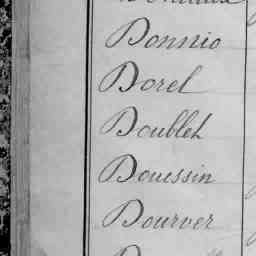 Donnio
Dorel
Doublet
Douessin
Dourver